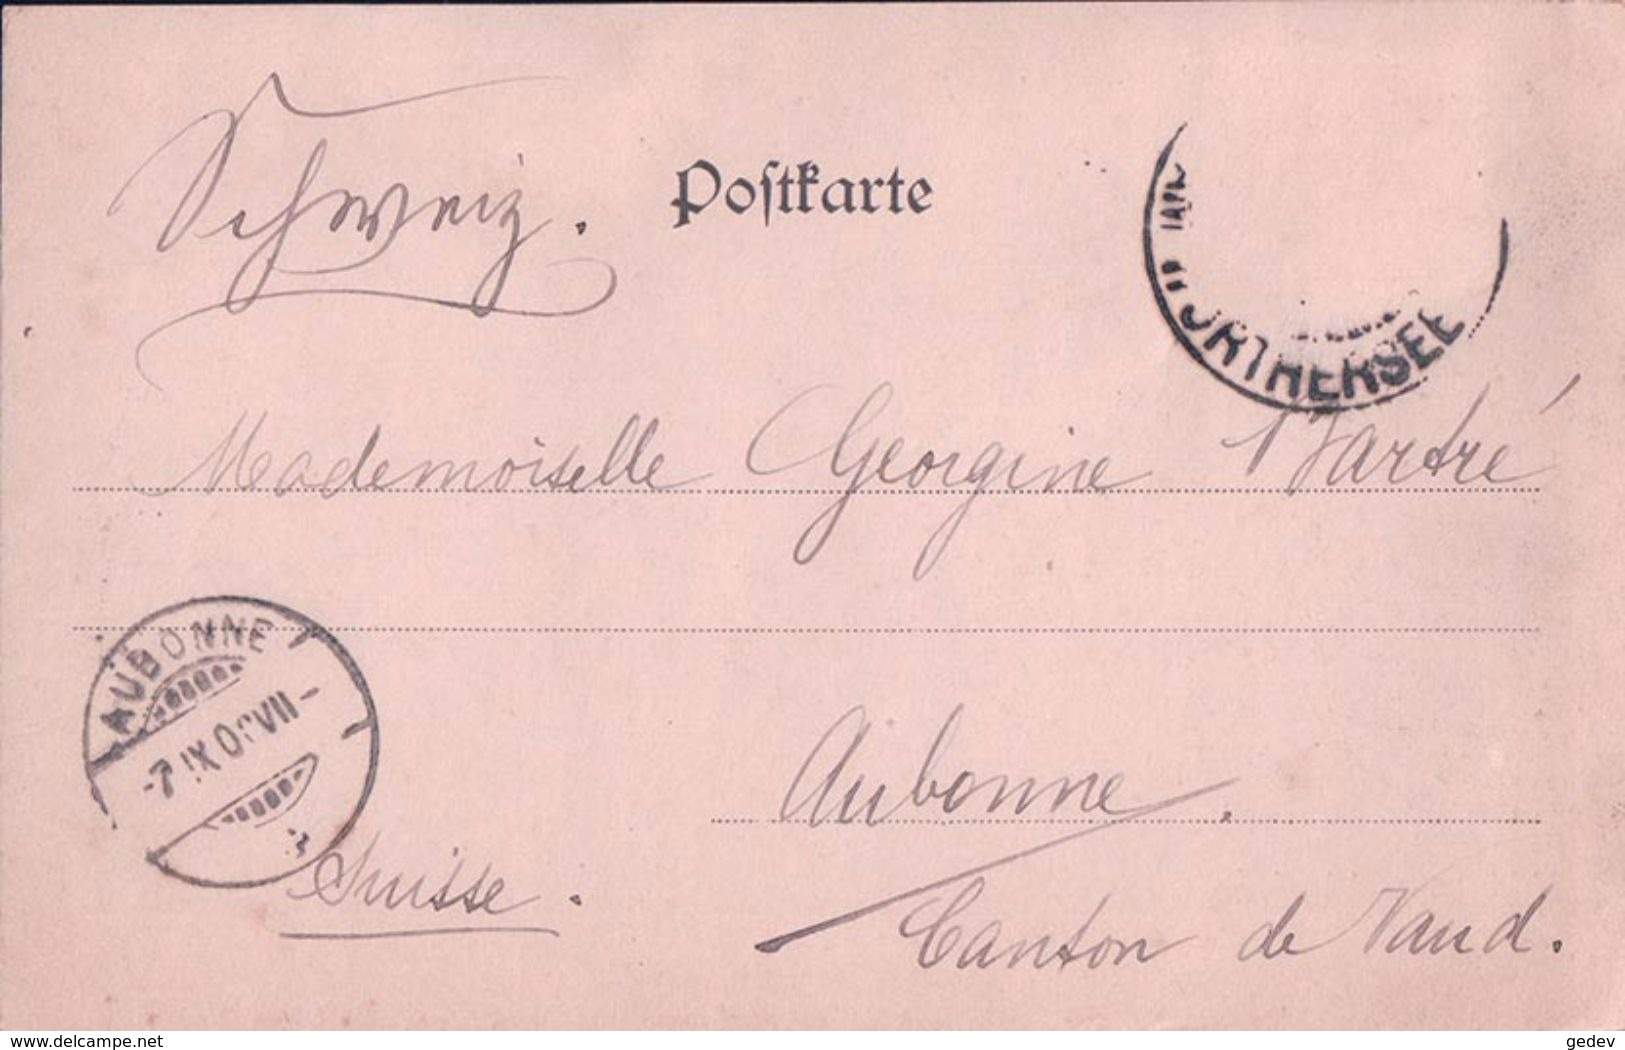 Schweiz.
Postkarte
ÖRTHERSEE
Mademoiselle Georgine Bartré
AUBONNE
-7.IX.0 VII-
Aubonne.
Suisse.
Canton de Vaud.
www.delcampe.net
gedev